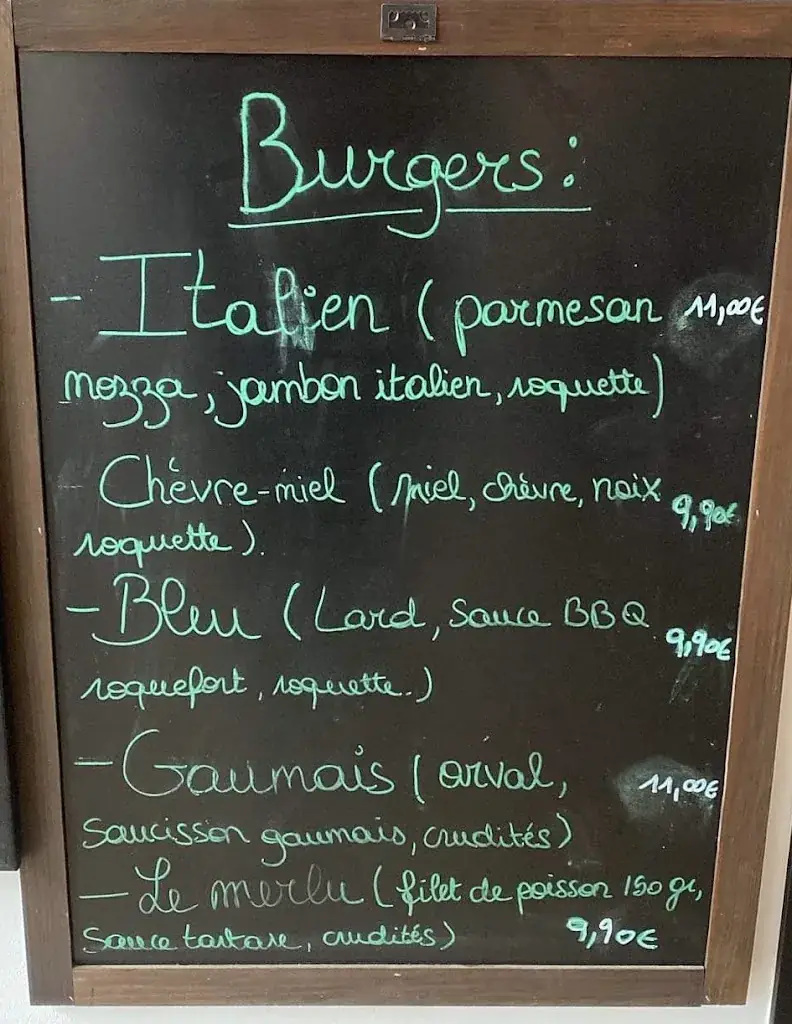 Burgers:
- Italien (parmesan 11,00€
mozza, jambon italien, roquette)
Chèvre-miel (miel, chèvre, noix 9,90€
roquette).
- Bleu (Lard, Sauce BBQ 9,90€
roquefort, roquette.)
- Gaumais (orval, 11,00€
Saucisson gaumais, crudités)
- Le merlu (filet de poisson 150 gr,
Sauce tartare, crudités) 9,90€